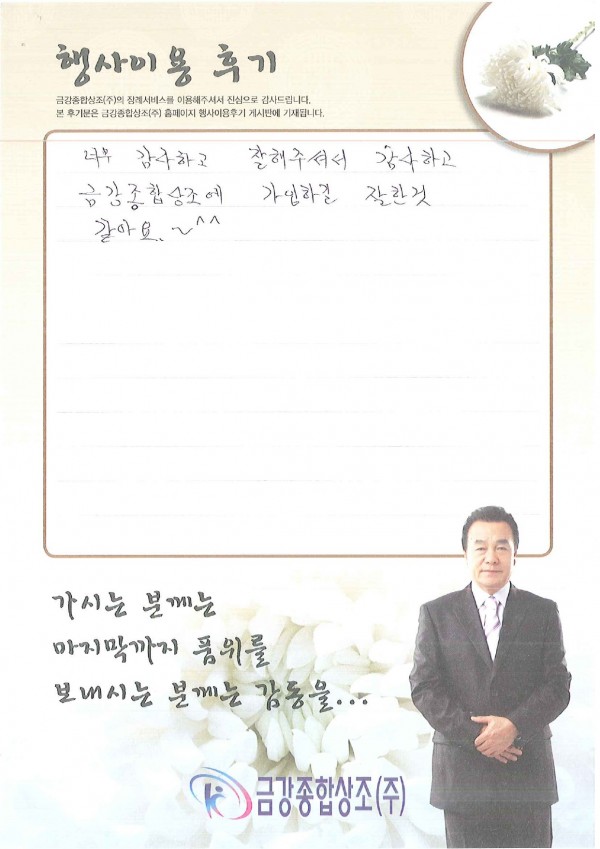 행사이용 후기
금강종합상조(주)의 장례서비스를 이용해주셔서 진심으로 감사드립니다.
본 후기분은 금강종합상조(주) 홈페이지 행사이용후기 게시판에 기재됩니다.
너무 감사하고 잘해주셔서 감사하고
금강종합상조에 가입하길 잘한것
같아요.. ~^^
가시는 분께는
마지막까지 품위를
보내시는 분께는 감동을...
금강종합상조(주)